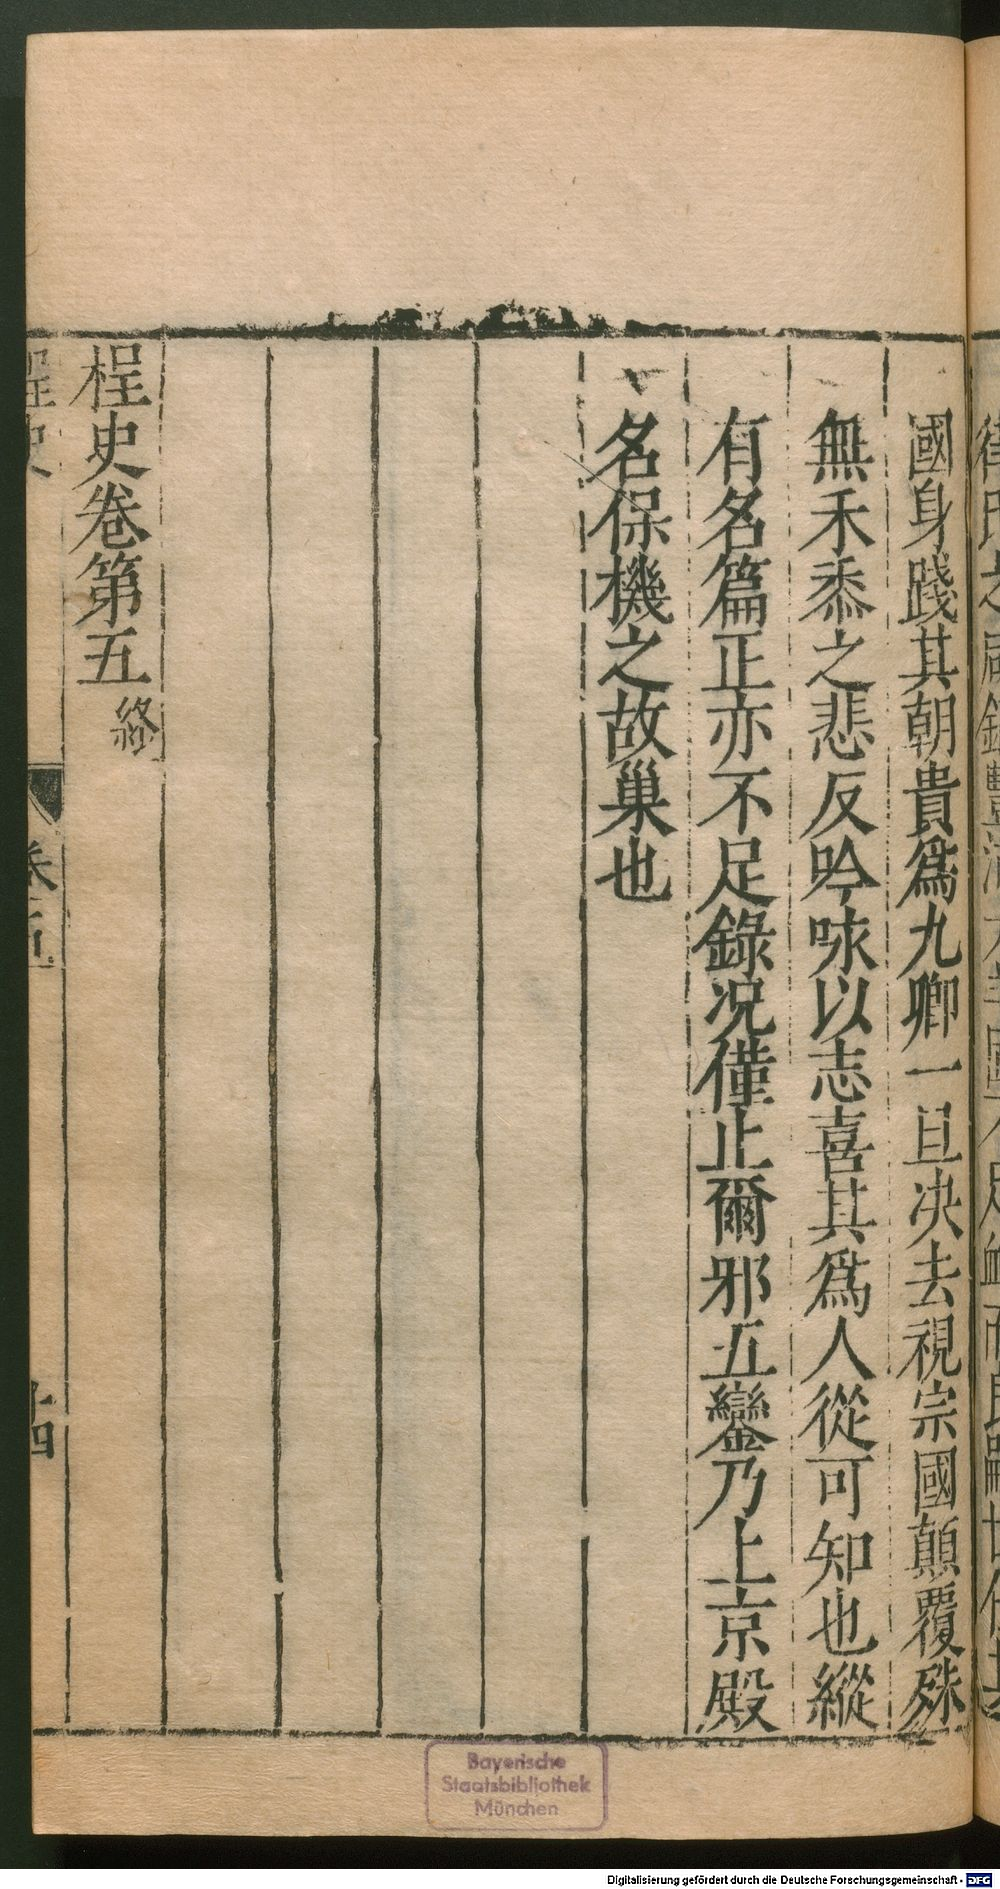 國身踐其朝貴爲九卿一旦决去視宗國顛覆殊
無禾黍之悲反吟咏以志喜其爲人從可知也縱
有名篇正亦不足錄况僅止爾邪五鑾乃上京殿
名保機之故巢也
桯史卷第五終
桯史
卷五
十四
Bayerische
Staatsbibliothek
München
Digitalisierung gefördert durch die Deutsche Forschungsgemeinschaft - DFG